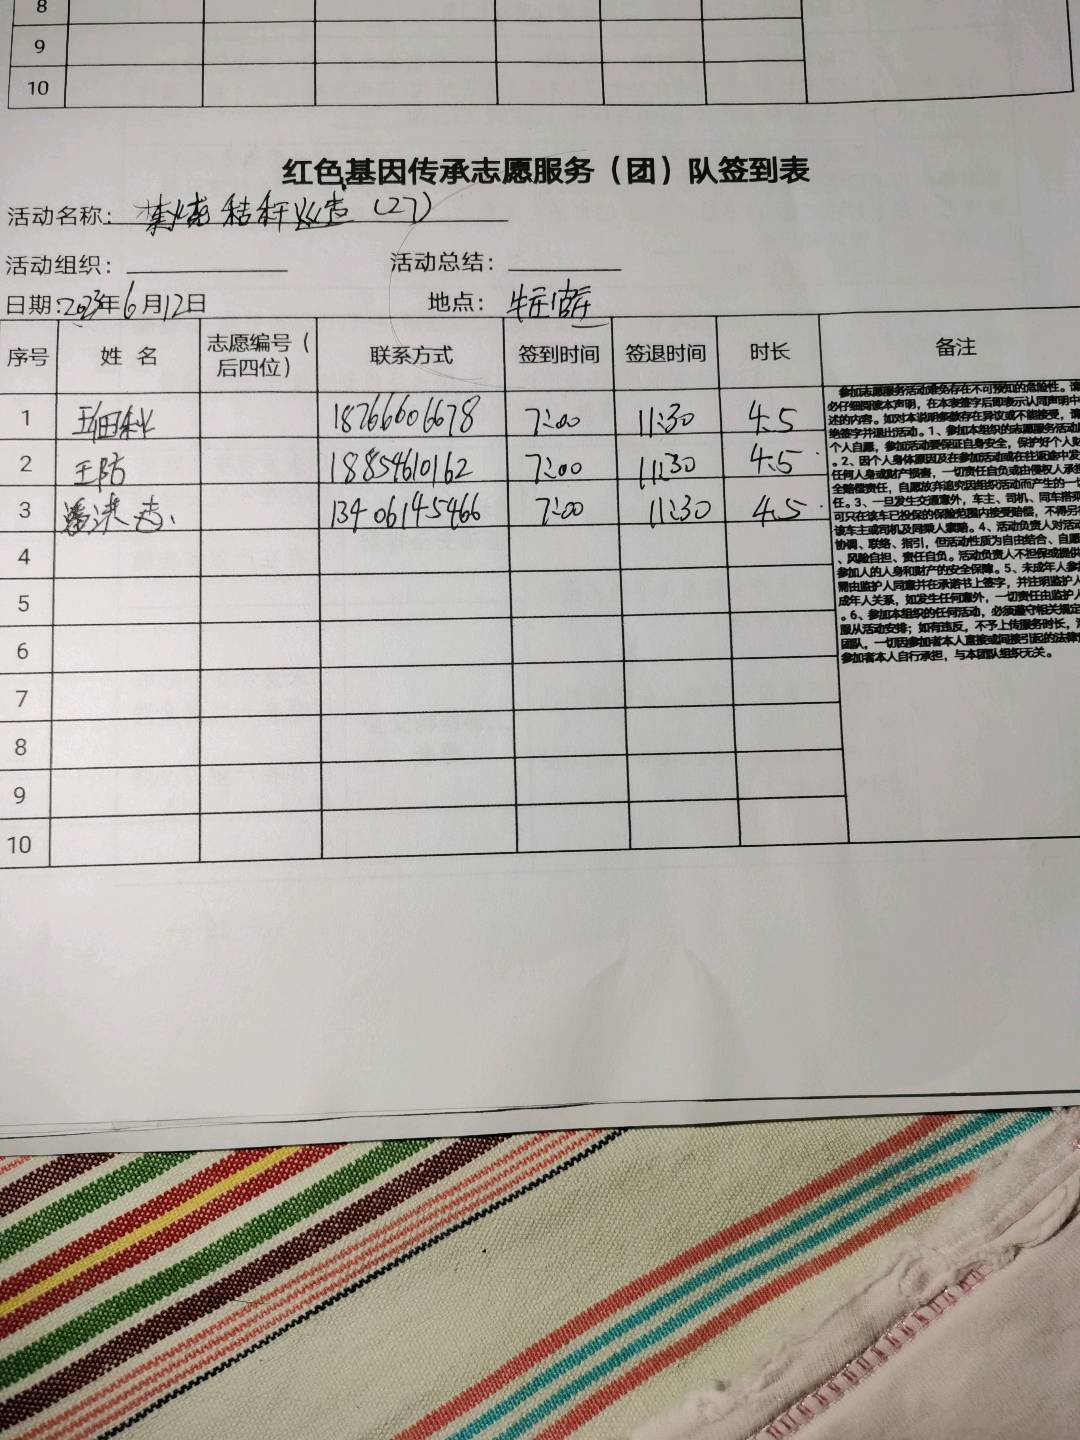 8
9
10
红色基因传承志愿服务（团）队签到表
活动名称：焚烧秸秆巡查（27）
活动组织：
活动总结：
日期：2023年6月12日
地点：
序号 姓名 志愿编号（后四位） 联系方式 签到时间 签退时间 时长 备注
1 18766606678 7:00 11:30 4.5
2 王防 18854610162 7:00 11:30 4.5
3 13406145466 7:00 11:30 4.5
4
5
6
7
8
9
10
参加志愿服务活动难免存在不可预知的危险性。请
必仔细阅读本声明，在本表签字后即表示认同声明中
述的内容。如对本说明条款存在异议或不能接受，请
绝签字并退出活动。1、参加本组织的志愿服务活动
个人自愿，参加活动要保证自身安全，保护好个人财
。2、因个人身体原因及在参加活动或在往返途中发
任何人身或财产损害，一切责任自负或由侵权人承担
全赔偿责任，自愿放弃追究因组织活动而产生的一切
任。3、一旦发生交通意外，车主、司机、同车搭乘
可只在该车已投保的保险范围内接受赔偿，不得另行
该车主或司机及同乘人索赔。4、活动负责人对活动
协调、联络、指引，但活动性质为自由结合、自愿
、风险自担、责任自负。活动负责人不担保或提供
参加人的人身和财产的安全保障。5、未成年人参
需由监护人同意并在承诺书上签字，并注明监护人
成年人关系，如发生任何意外，一切责任由监护人
。6、参加本组织的任何活动，必须遵守相关规定
服从活动安排；如有违反，不予上传服务时长，
团队，一切因参加者本人直接或间接引起的法律
参加者本人自行承担，与本团队组织无关。